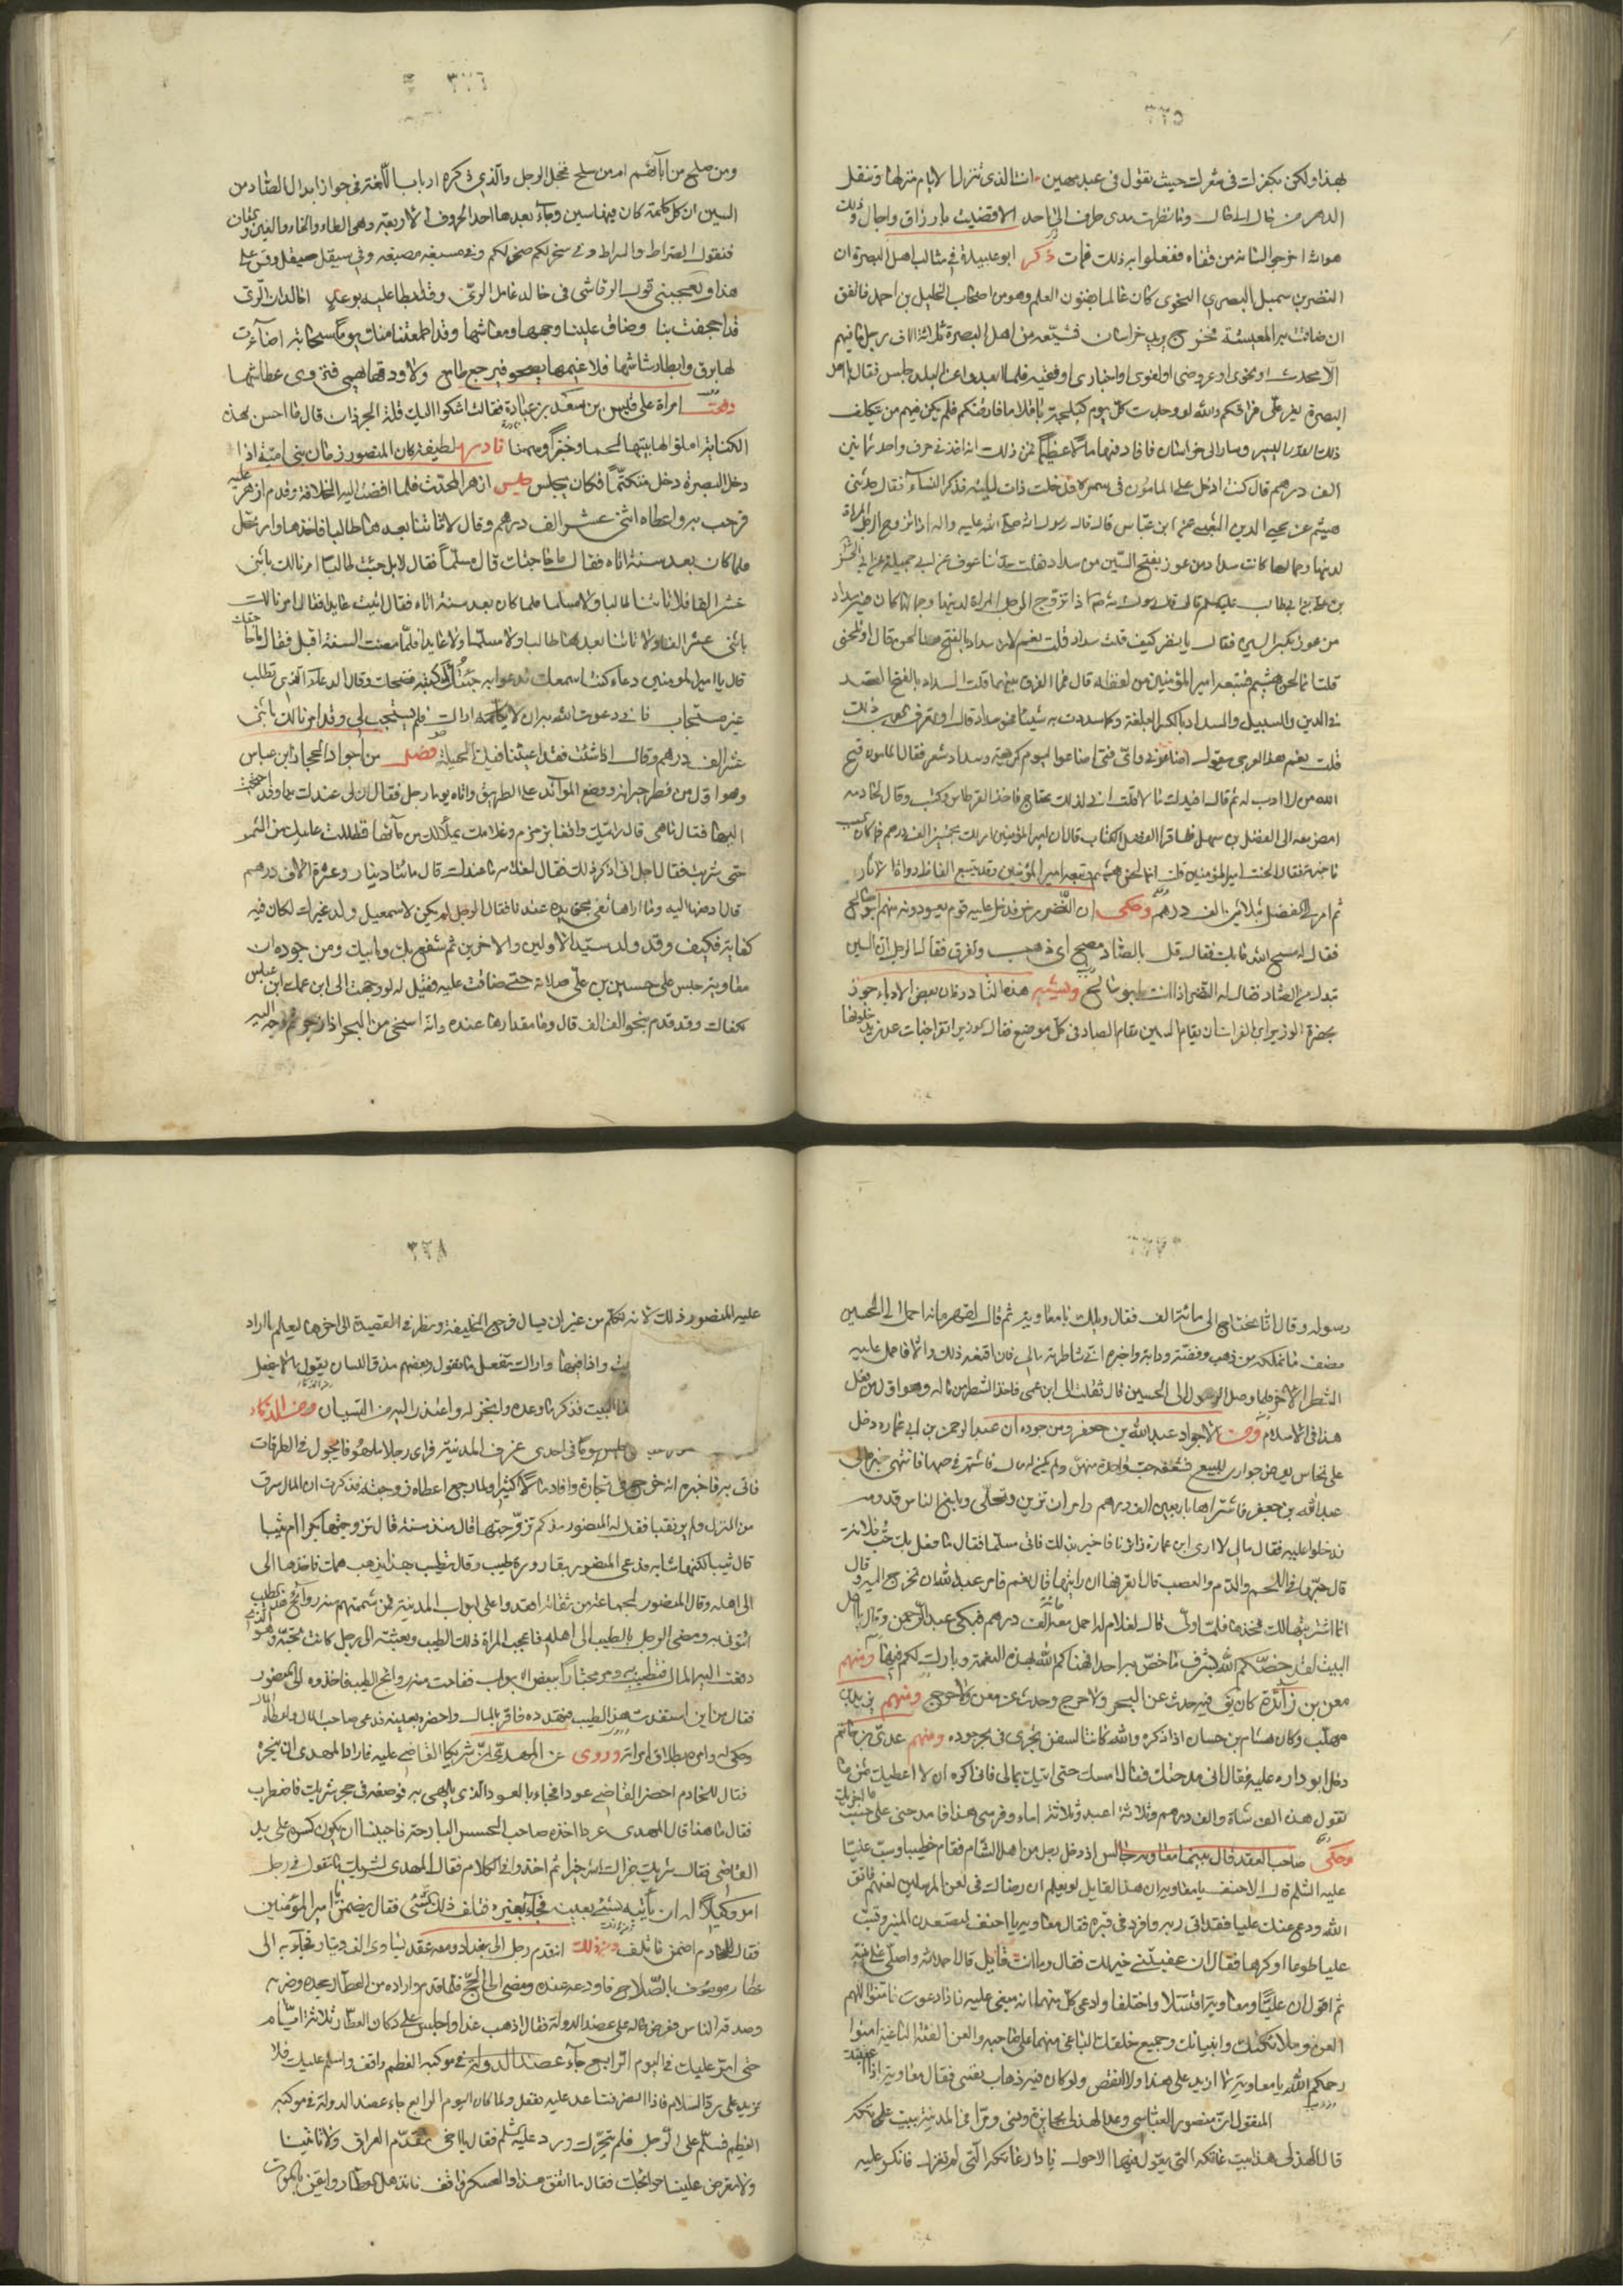 ٣٢٥
بهذا ولكن بكفرات في شعرك حيث تقول في عبد مهين انت الذي تنزل الايام منزلها وتنقل
الدهر من حال الى حال وما نظرت مدى طرف الى احد الا قضيت بارزاق واجال وذلك
هو اخرجوا لسانه من قفاه ففعلوا به ذلك فمات ذكر ابو عبيدة في مثالب اهل البصرة ان
النضر بن شميل البصري النحوي كان عالما بفنون العلم وهو من اصحاب الخليل بن احمد فاتفق
ان ضاقت به المعيشة فخرج يريد خراسان فشيعه من اهل البصرة ثلاثة الاف رجل ما فيهم
الا محدث او نحوي او عروضي او لغوي او اخباري او فقيه فلما ابعدوا عن البلد جلس فقال يا اهل
البصرة يعز علي فراقكم والله لو وجدت كل يوم كيلجة باقلا ما فارقتكم فلم يكن فيهم من يتكلف
ذلك القدر اليسير وسار الى خراسان فافاد فيها مالا عظيما فمن ذلك انه اخذ في حرف واحد ثمانين
الف درهم قال كنت ادخل على المامون في سمره فدخلت ذات ليلة فذكر النساء فقال حدثني
هيثم عن ابن عباس قال قال رسول الله صلى الله عليه واله اذا تزوج الرجل المراة
لدينها وجمالها كانت سداد من عوز بفتح السين من سداد فقلت حدثنا عوف عن ابي جميلة
بن علي بن ابي طالب قال قال رسول الله اذا تزوج الرجل المراة لدينها وجمالها كان فيه سداد
من عوز بكسر السين فقال يا نضر كيف قلت سداد قلت نعم لان سداد بالفتح هنا لحن قال اوتلحنني
قلت انما لحن هشيم فتبعه امير المؤمنين من لفظه قال فما الفرق بينهما قلت السداد بالفتح القصد
في الدين والسبيل والسداد بالكسر البلغة وكلما سددت به شيئا فهو سداد قال او تعرف العرب ذلك
قلت نعم هذا العرجي يقول اضاعوني واي فتى اضاعوا ليوم كريهة وسداد ثغر فقال المامون قبح
الله من لا ادب له ثم قال
امض معه الى الفضل بن سهل فلما قرأ الفضل الكتاب قال ان امير المؤمنين امر لك بخمسين الف درهم فما كان سبب
فاخبرته فقال الحنت امير المؤمنين قلت انما لحن هشيم فتبعه امير المؤمنين وقد تتبع الفاظ رواة الاثار
ثم امر لي الفضل بثلاثين الف درهم وحكي ان النضر مرض فدخل عليه قوم يعودونه منهم ابو صالح
فقال له مسح الله ما بك فقال قل بالصاد مصح اي ذهب وتفرق فقال الرجل ان السين
تبدل من الصاد فقال له النضر اذا انت ابو سالح ويشبه هذه النادرة ان بعض الادباء جوز
بحضرة الوزير ابن الفرات ان يقام السين مقام الصاد في كل موضع فقال الوزير اتقرأ جنات عدن يدخلونها
٣٢٦
ومن صلح من آبائهم ام من سلح فخجل الرجل والذي ذكره ارباب اللغة في جواز ابدال الصاد من
السين ان كل كلمة كان فيها سين وجاء بعدها احد الحروف الاربعة وهي الطاء والخاء والغين والقاف
فتقول الصراط والسراط وفي سخر لكم صخر لكم وفي مسغبة مصغبة وفي سيقل صيقل وقس على
هذا ويعجبني قول الرقاشي في خالد عامل الري وقد ابطا عليه بوعد اخالد ان الري
قد اجحفت بنا وضاق علينا وجهها ومعاشها وقد اطمعتنا منك يوما سحابة اضاءت
لها برق وابطا رشاشها فلا غيمها يصحو فيرجع طامع ولا ودقها يهمي فتروى عطاشها
وقفت امراة على قيس بن سعد بن عبادة فقالت اشكوا اليك قلة الجرذان قال ما احسن هذه
الكناية املؤا لها بيتها لحما وخبزا وسمنا نادرة لطيفة كان المنصور زمان بني امية اذا
دخل البصرة دخل متكتما فكان يجلس حلقة ازهر المحدث فلما افضت اليه الخلافة وقدم ازهر عليه
فرحب به واعطاه اثني عشر الف درهم وقال لا تاتنا بعد هنا طالبا فاخذها وارتحل
فلما كان بعد سنة اتاه فقال ما حاجتك قال مسلما فقال لا بل جئت طالبا امرنا لك باثني
عشر الفا فلا تاتنا طالبا ولا مسلما فلما كان بعد سنة اتاه فقال اتيت عايدا فقال امرنا لك
باثني عشر الفا ولا تاتنا بعد هنا طالبا ولا مسلما ولا عايدا فلما مضت السنة اقبل فقال ما حاجتك
قال يا امير المؤمنين دعاء كنت اسمعك تدعوا به جئت لاكتبه فضحك وقال الدعاء الذي تطلب
غير مستجاب فاني دعوت الله به ان لا اراك فلم يستجب لي وقد امرنا لك باثني
عشر الف درهم وتعال اذا شئت فقد اعيتنا فيك الحيلة فصل من اجواد الحجاز ابن عباس
وهو اول من فطر جيرانه ووضع الموائد على الطريق واتاه يوما رجل فقال ان لي عندك يدا وقد احتجت
اليها فقال ما هي قال رايتك واقفا بزمزم وغلامك يملأ لك من مائها فظللت عليك من الشمس
حتى شربت فقال اجل اني اذكر ذلك فقال لغلامه ما عندك قال مائتا دينار وعشرة الاف درهم
قال ادفعها اليه وما اراها تفي بحق يده عندنا فقال الرجل لو لم يكن لاسمعيل ولد غيرك لكان فيه
كفاية فكيف وقد ولد سيد الاولين والاخرين ثم شفع بك وبابيك ومن جوده ان
معاوية حبس على حسين بن علي صلاته حتى ضاقت عليه فقيل له لو وجهت الى ابن عمك ابن عباس
لكفاك وقد قدم بنحو الف الف قال وما مقدارها عنده وانه اسخى من البحر اذا زخر ثم وجه اليه
٣٢٧
رسوله وقال انا نحتاج الى مائة الف فقال ويلك يا معاوية ثم قال لقهرمانه احمل الى الحسين
نصف ما نملكه من ذهب وفضة ودابة واخبره اني شاطرته مالي فان اقنعه ذلك والا فاحمل عليه
الشطر الاخر فلما وصل الرسول الى الحسين قال ثقلت الى ابن عمي فاخذ الشطر من ماله وهو اول من فعل
هذا في الاسلام ومن الاجواد عبد الله بن جعفر ومن جوده ان عبد الرحمن بن ابي عمارة دخل
على نخاس يعرض جواري للبيع فشغفه حب واحدة منهن ولم يكن له مال فاشتهر في حبها فانتهى خبره الى
عبد الله بن جعفر فاشتراها باربعين الف درهم وامر ان تزين وتحلى وبلغ الناس قدومه
فدخلوا عليه فقال مالي لا ارى ابن عمارة زائرنا فاخبر بذلك فاتى مسلما فقال ما فعل بك حب فلانة
قال حبها في اللحم والدم والعصب قال اتعرفها ان رايتها قال نعم فامر عبد الله ان تخرج اليه وقال
انما اشتريتها لك فخذها فلما ولى قال لغلام له احمل معه مائة الف درهم فبكى عبد الرحمن وقال يا اهل
البيت لقد خصكم الله بشرف ما خص به احدا فهناكم الله بهذه النعمة وبارك لكم فيها ومنهم
معن بن زائدة كان يقال فيه حدث عن البحر ولا حرج وحدث عن معن ولا حرج ومنهم يزيد بن
مهلب وكان هشام بن حسان اذا ذكره قال والله كانت السفن تجري في بحر جوده ومنهم عدي بن حاتم
دخل ابو دارة عليه فقال اني مدحتك فقال امسك حتى اتيك بمالي فاني اكره ان لا اعطيك ثمن ما
تقول هذه الف شاة والف درهم وثلاثة اعبد وثلاثة اماء وفرسي هذا فامدحني على حسب ما اخبرتك
وحكى صاحب العقد قال بينما معاوية جالس اذ دخل رجل من اهل الشام فقام خطيبا وسب عليا
عليه السلام قال الاحنف يا معاوية ان هذا القايل لو يعلم ان رضاك في لعن المرسلين لعنهم فاتق
الله ودع عنك عليا فقد لقي ربه وافرد في قبره فقال معاوية يا احنف لتصعدن المنبر وتسب
عليا طوعا او كرها فقال ان عفيتني خير لك فقال وما انت قايل قال احمد الله واصلي على نبيه
ثم اقول ان عليا ومعاوية اقتتلا واختلفا وادعى كل منهما انه مبغي عليه فاذا دعوت فامنوا اللهم
العن وملائكتك وانبيائك وجميع خلقك الباغي منهما على صاحبه والعن الفئة الباغية امنوا
رحمكم الله يا معاوية لا ازيد على هذا ولا انقص ولو كان فيه ذهاب نفسي فقال معاوية اذا اعفيك
المنقول ان منصور العباسي وعد الهذلي بجائزة ونسي ومرا في المدينة ببيت عاتكة
قال الهذلي هذا بيت عاتكة التي يقول فيها الاحوال يا دار عاتكة التي اتعزل فانكر عليه
٣٢٨
عليه المنصور ذلك لانه تكلم من غير ان يسال فرجع الخليفة ونظر في القصيدة الى اخرها ليعلم ما اراد
واذا فيها واراك تفعل ما تقول وبعضهم مذق اللسان يقول ما لا يفعل
البيت فذكر ما وعده وانجز له واعتذر اليه من النسيان ومن الذكاء
جلس يوما في احدى غرف المدينة فراى رجلا ملهوفا يجول في الطرقات
فاتي به فاخبره انه خرج في تجارة وافاد مالا كثيرا ولما رجع اعطاه زوجته فذكرت ان المال سرق
من المنزل ولم ير نقبا فقال له المنصور منذ كم تزوجتها قال منذ سنة قال تزوجتها بكرا ام ثيبا
قال ثيبا لكنها شابة فدعى المنصور بقارورة طيب وقال تطيب بهذا يذهب همك فاخذها الى
الى اهله وقال المنصور لجماعة من ثقاته اقعدوا على ابواب المدينة فمن شممتم منه روائح هذا الطيب
ائتوني به ومضى الرجل بالطيب الى اهله فاعجب المراة ذلك الطيب وبعثته الى رجل كانت تحبه وهو الذي
دفعت اليه المال فتطيب به ومر مجتازا ببعض الابواب ففاحت منه روائح الطيب فاخذوه الى المنصور
فقال من اين استفدت هذا الطيب فتهدده فاقر بالمال واحضره بعينه فدعى صاحب المال واعطاه المال
وحكى له وامره بطلاق امراته وروي عن المهدي ان شريكا القاضي عليه فاراد المهدي ان يبخره
فقال للخادم احضر القاضي عودا فجاء بالعود الذي يلهى به فوضعه في حجر شريك فاضطرب
فقال ما هذا قال المهدي عودا اخذه صاحب العسس البارحة فاحببنا ان يكون كسره على يد
القاضي فقال شريك جزاك الله خيرا ثم اخذوا في الكلام فقال المهدي لشريك ما تقول في رجل
امر وكيلا له ان ياتيه بشيء بعينه فجاء بغيره فتلف ذلك الشيء فقال يضمن يا امير المؤمنين
فقال للخادم اضمن ما تلف ومن ذلك انه قدم رجل الى بغداد ومعه عقد يساوي الف دينار فجاء به الى
عطار موصوف بالصلاح فاودعه عنده ومضى الى الحج فلما قدم واراده من العطار جحده وضربه
وصدقه الناس فعرض حاله على عضد الدولة فقال اذهب غدا واجلس على دكان العطار ثلاثة ايام
حتى امر عليك في اليوم الرابع جاء عضد الدولة في موكبه العظيم واقف واسلم عليك فلا
تزيد على رد السلام فاذا انصرفت اعد عليه ففعل ولما كان اليوم الرابع جاء عضد الدولة في موكبه
العظيم فسلم على الرجل فلم يتحرك ورد عليه السلم فقال يا اخي تقدم العراق ولا تاتينا
ولا تعرض علينا حوائجك فقال ما اتفق هذا والعسكر واقف فانذهل العطار وايقن بالموت